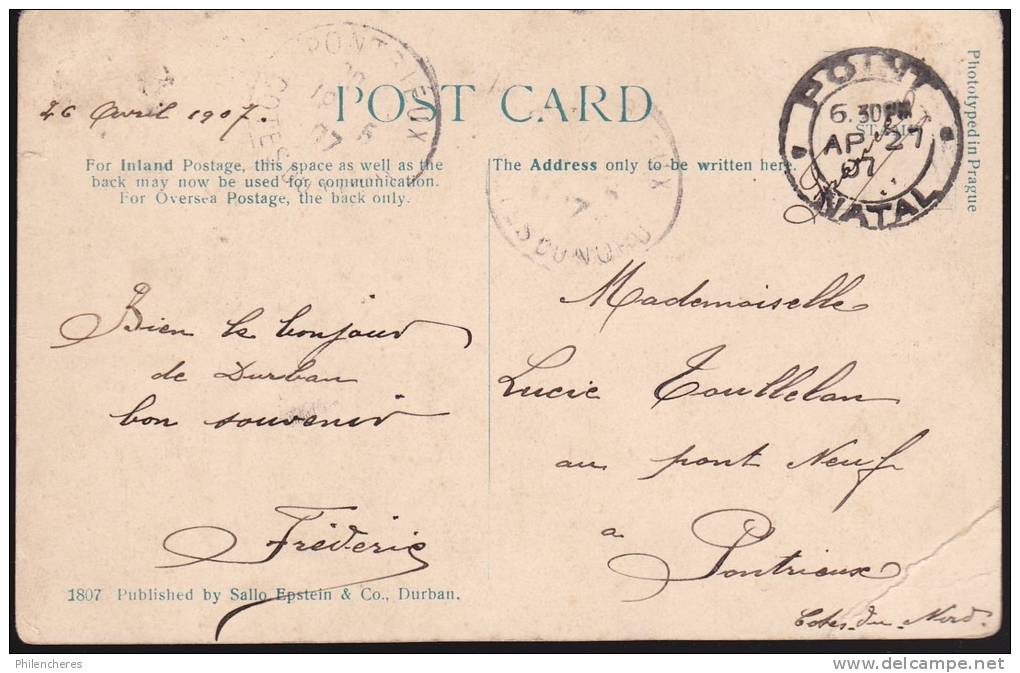 PONTRIEUX
COTES DU
07
26 Avril 1907.
POST CARD
For Inland Postage, this space as well as the
back may now be used for communication.
For Oversea Postage, the back only.
The Address only to be written here.
POINT
6.30PM
AP 27
07
NATAL
Phototyped in Prague
X
DU NORD
Bien le bonjour
de Durban
bon souvenir
Fréderic
Mademoiselle
Lucie Toullelan
au pont Neuf
a
Pontrieux
Cotes-du-Nord.
1807 Published by Sallo Epstein & Co., Durban.
Philencheres
delcampe.net